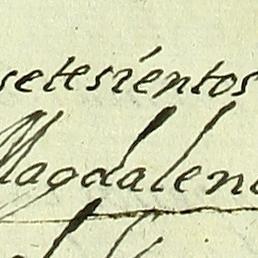 setesientos
Magdalen